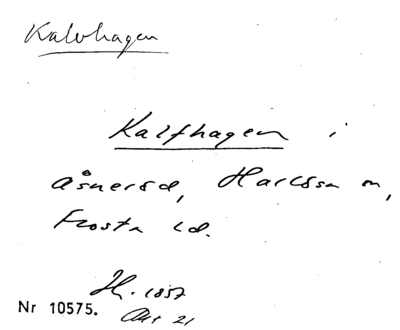 Kalvhagen
Kalfhagen i
åsneröd, Harlösa sn,
Frosta hd.
H. 1857
Nr 10575. Akt 21